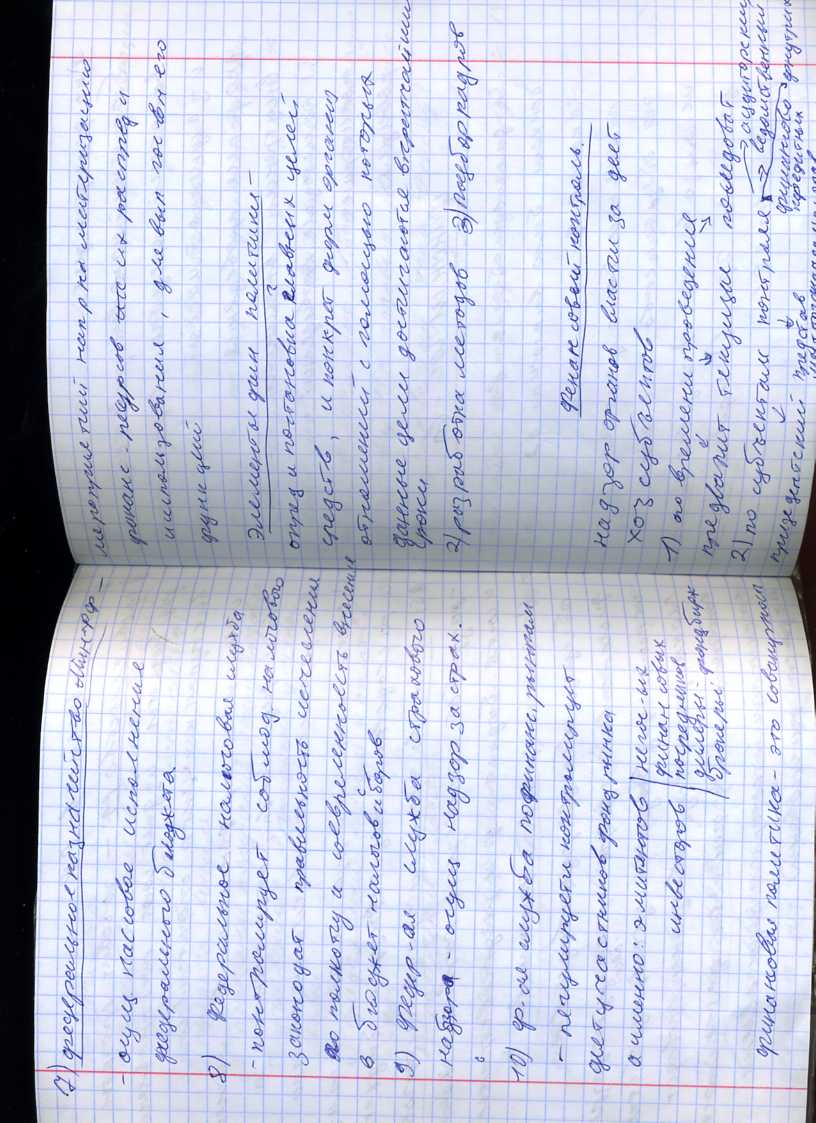 7) федеральное казначейство Минфрф -
- осущ кассовое исполнение
федерального бюджета
8) Федеральное налоговая служба
- контролирует соблюд налогового
законодат правильность исчесление
полноту и соевременность внесения
в бюджет налогов и сборов
9) Федер-ая служба страхового
надзора - осущ надзор за страх.
10) Ф-ая служба пофинанс. рынкам
- регулирует и контролирует
деят участников фонд рынка
а именно: эмитентов
инвесторов
него с-их
финансовых
посредников
дилеры фондбирж
брокеры
финансовая политика - это совокупност
мероприятий напр на материзацию
финанс - ресурсов их распред и
использования, для вып гос-вн его
функций
Элементы фин политики -
опред и постановка главеных целей
средств, и конкрет форм организ
отношений с помощью которых
данные цели достигаются в кратчайшие
сроки
2) разработка методов 3) подбор кадров
Финансовый контроль.
надзор органов власти за деят
хоз субъектов
1) по времени проведения
предварит текущие последоват
2) по субъектам контроля → аудиторский
→ ведомственный
президентский представ
финансово
кредитных
внутрихо